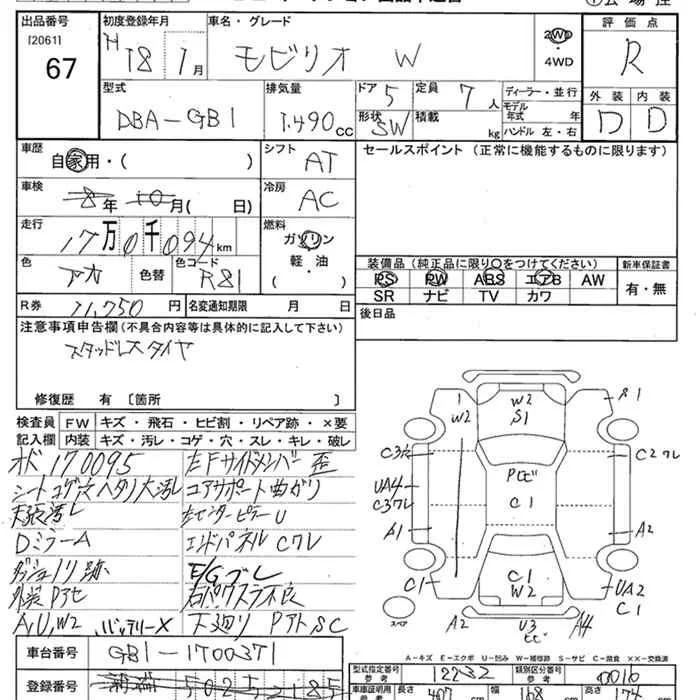 出品番号
[2061]
67
初度登録年月
H 18 1月
車名・グレード
モビリオ W
2WD
4WD
評価点
R
外装 内装
D D
型式
DBA-GB1
排気量
1.490cc
ドア 5
形状 SW
定員 7人
積載 kg
ディーラー・並行
モデル年式 年
ハンドル 左・右
車歴
自家用・( )
シフト
AT
セールスポイント (正常に機能するものに限ります)
車検
8年 10月( 日)
冷房
AC
走行
17万0千094km
燃料
ガソリン
軽・油
( )
色
アカ
色替
色コード
R81
装備品(純正品に限り○をつけてください)
新車保証書
PS PW ABS エアB AW
SR ナビ TV カワ
有・無
R券 11,750円
名変通知期限 月 日
後日品
注意事項申告欄(不具合内容等は具体的に記入して下さい)
スタッドレスタイヤ
修復歴 有 [箇所 ]
検査員記入欄
FW キズ・飛石・ヒビ割・リペア跡・×要
内装 キズ・汚レ・コゲ・穴・スレ・キレ・破レ
オド 170095
左Fサイドメンバー歪
シートコゲ穴ヘタリ大汚レ
コアサポート曲ガリ
天張汚レ
左センターピラーU
DミラーA
エンドパネルCワレ
ダッシュノリ跡
E/Gブレ
外装Pアセ
右Pウスラネ良
A,U,W2 バッテリーX
下廻りPアトSC
車台番号
GB1-1700371
登録番号
502 5185
1
W2
W2
S1
S1
C3
C2ワレ
UA4
C3ワレ
Pロビ
C1
A1
A2
C1
C1
W2
UA2
C1
スペア
A2
U3
ヒビ
A4
A-キズ E-エクボ U-凹み W-補修跡 S-サビ C-腐食 XX-交換済
型式指定番号 参考 12232
類別区分番号 参考 0016
車庫証明用 参考 長さ 407 幅 168 高さ 174